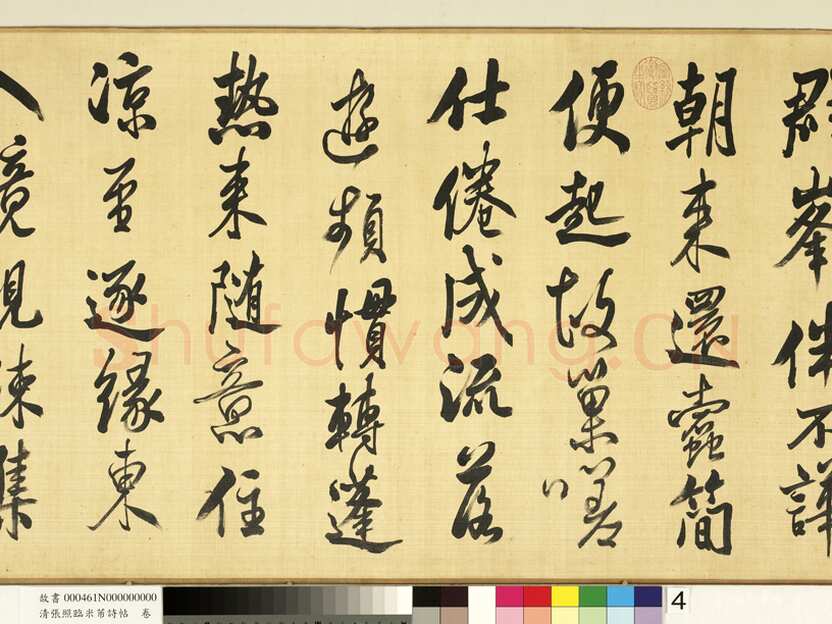 群峯伴不譁
朝来還蠹簡
便起故巢嗟
仕倦成流落
遊頻慣轉蓬
熱来随意住
凉至逐緣東
入境親疎集
Shufawang.CN
故書 000461N000000000
清張照臨米芾詩帖 卷
4